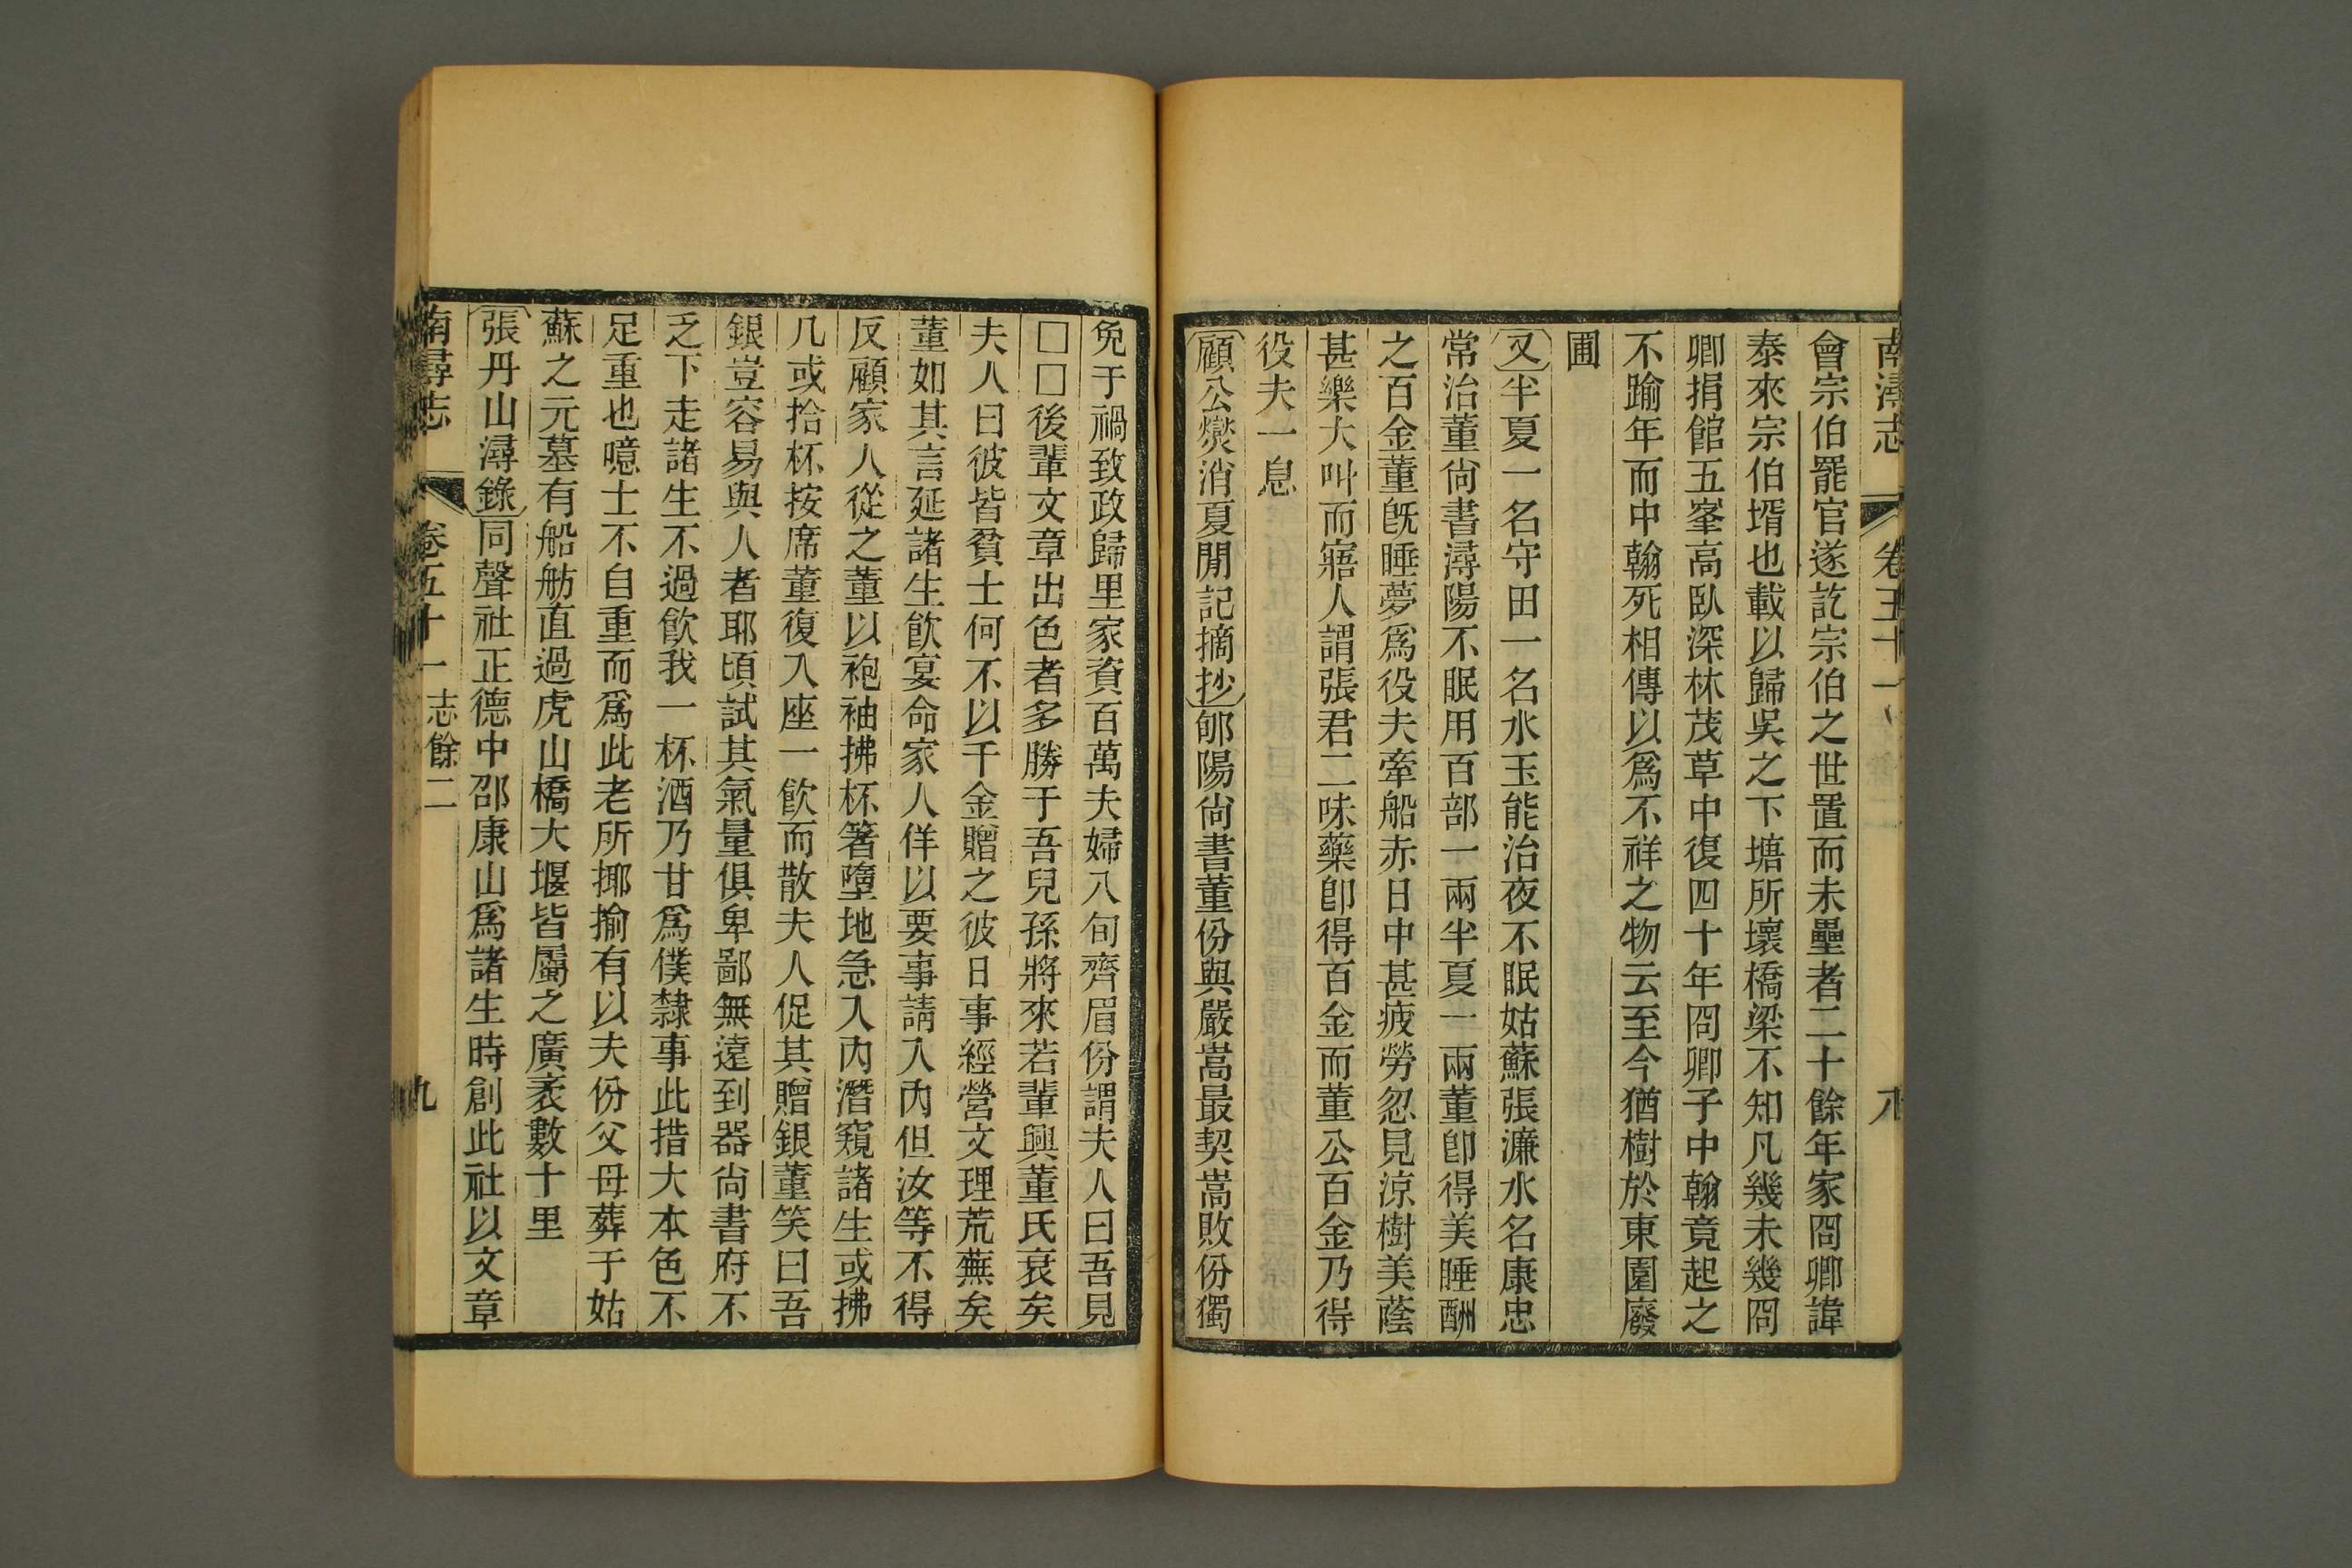 南潯志 卷五十一 八
會宗伯罷官遂訖宗伯之世置而未壘者二十餘年家冏卿諱
泰來宗伯壻也載以歸吳之下塘所壞橋梁不知凡幾未幾冏
卿捐館五峯高臥深林茂草中復四十年冏卿子中翰竟起之
不踰年而中翰死相傳以爲不祥之物云至今猶樹於東園廢
圃
又半夏一名守田一名水玉能治夜不眠姑蘇張濂水名康忠
常治董尙書潯陽不眠用百部一兩半夏一兩董卽得美睡酬
之百金董旣睡夢爲役夫牽船赤日中甚疲勞忽見涼樹美蔭
甚樂大叫而寤人謂張君二味藥卽得百金而董公百金乃得
役夫一息
顧公燮消夏閒記摘抄郇陽尙書董份與嚴嵩最契嵩敗份獨
免于禍致政歸里家資百萬夫婦八旬齊眉份謂夫人曰吾見
□□後輩文章出色者多勝于吾兒孫將來若輩興董氏衰矣
夫人曰彼皆貧士何不以千金贈之彼日事經營文理荒蕪矣
董如其言延諸生飮宴命家人佯以要事請入內但汝等不得
反顧家人從之董以袍袖拂杯箸墮地急入內潛窺諸生或拂
几或拾杯按席董復入座一飮而散夫人促其贈銀董笑曰吾
銀豈容易與人者耶頃試其氣量俱卑鄙無遠到器尙書府不
乏下走諸生不過飮我一杯酒乃甘爲僕隸事此措大本色不
足重也噫士不自重而爲此老所揶揄有以夫份父母葬于姑
蘇之元墓有船舫直過虎山橋大堰皆屬之廣袤數十里
張丹山潯錄同聲社正德中邵康山爲諸生時創此社以文章
南潯志 卷五十一 志餘二 九